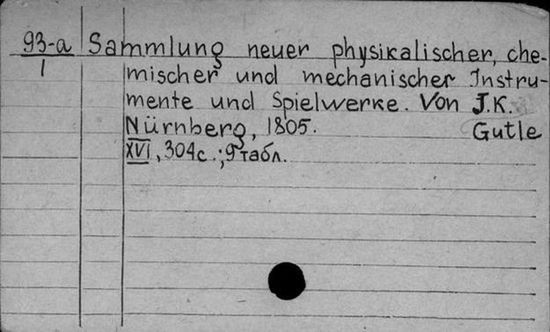 93-a Sammlung neuer physikalischer, che-
1 mischer und mechanischer Instru-
mente und Spielwerke. Von J.K.
Nürnberg, 1805. Gutle
XVI, 304 с.; 9 табл.